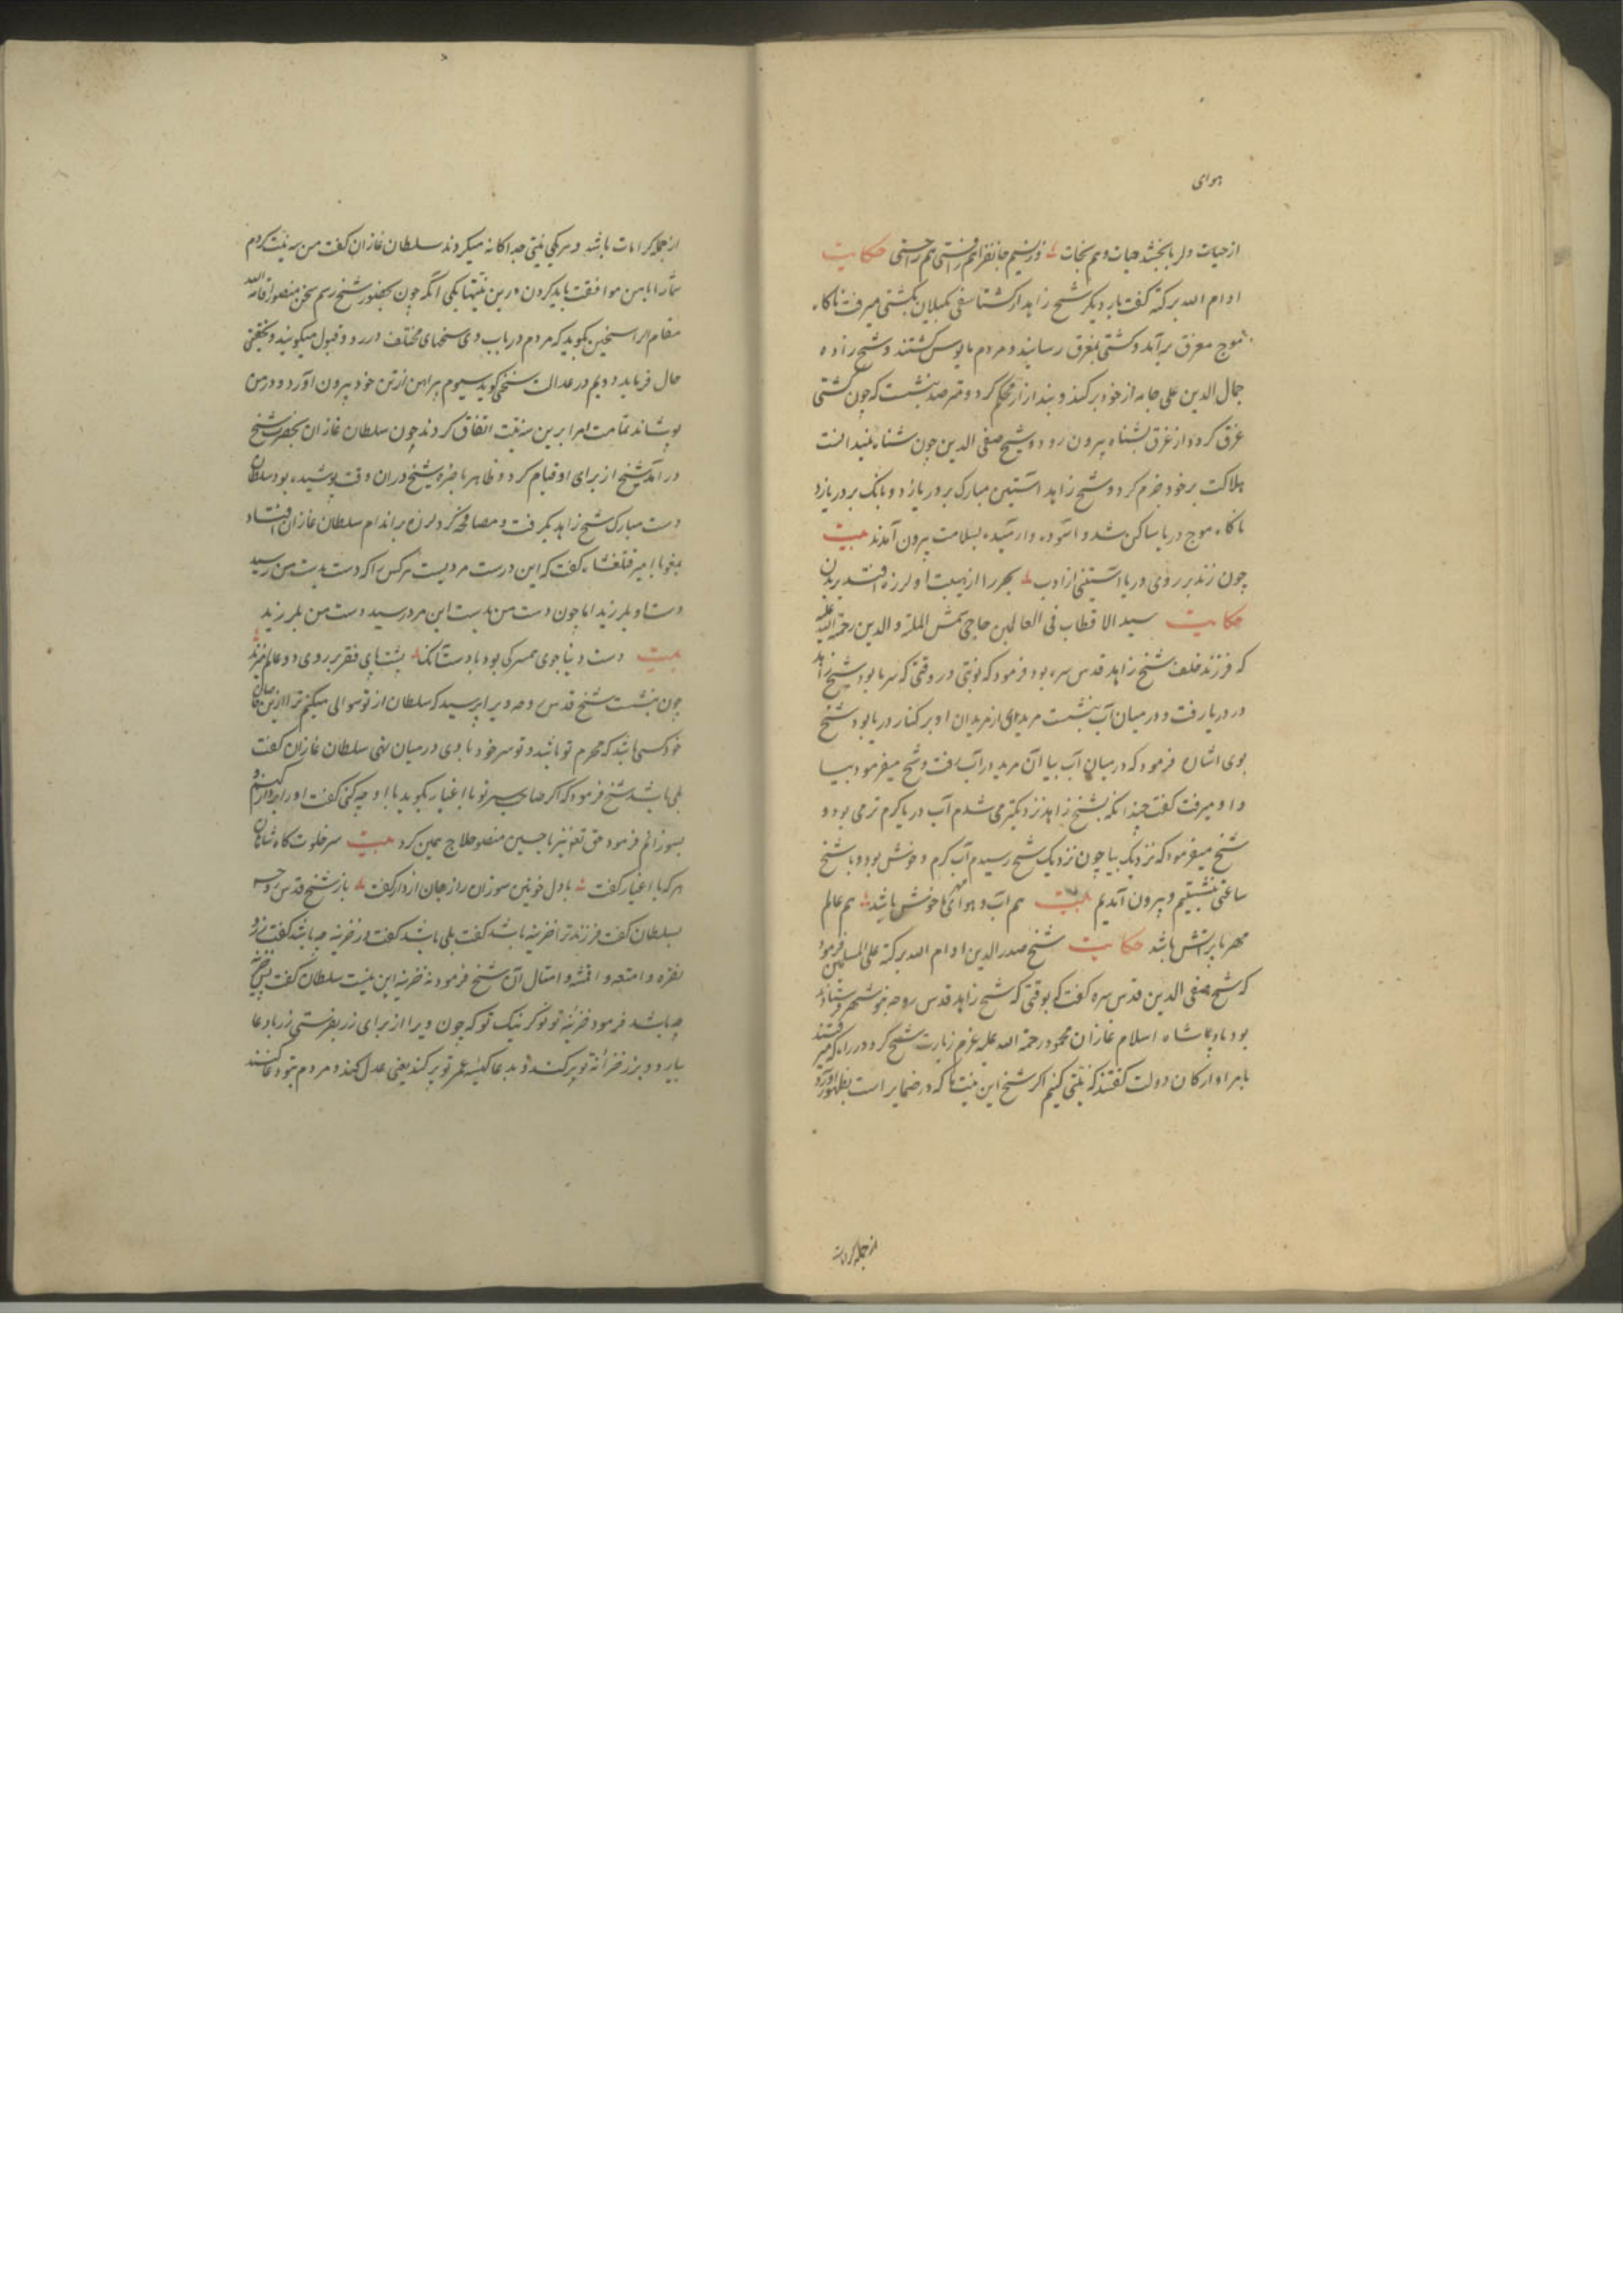 هوای
از حیات دلربا بخشد حیات و هم نجات وز نسیم جانفزا هم فرستی هم راحتی حکایت
ادام الله برکته گفت بار دیگر شیخ زاهد از کشتاسفی بگیلان بکشتی میرفت ناکاه
موج مغرق برآمد و کشتی بغرق رسانید و مردم مایوس کشتند و شیخ زاده
جمال الدین علی جامه از خود برکند و بند ازار محکم کرد و مترصد بنشست که چون کشتی
غرق کردد از غرق بشناه بیرون رود و شیخ صفی الدین چون شناه نمیدانست
هلاکت بر خود جزم کرد و شیخ زاهد آستین مبارک بر دریا زد و بانک بر دریا زد
ناکاه موج دریا ساکن شد و آسوده و آرمیده بسلامت بیرون آمدند بیت
چون زند بر روی دریا آستینی از ادب بحر را از هیبت او لرزه افتد بر بدن
حکایت سید الاقطاب فی العالمین حاجی شمس الملة و الدین رحمة الله علیه
که فرزند خلف شیخ زاهد قدس سره بود فرمود که نوبتی در وقتی که سرما بود شیخ زاهد
در دریا رفت و در میان آب بنشست مریدی از مریدان او بر کنار دریا بود شیخ
بوی اشارت فرمود که در میان آب بیا آن مرید در آب رفت و شیخ میفرمود بیا
و او میرفت گفت چندانکه بشیخ زاهد نزدیکتر می شدم آب دریا کرم تر می بود و
شیخ میفرمود که نزدیک بیا چون نزدیک شیخ رسیدم آب کرم و خوش بود و با شیخ
ساعتی بنشستیم و بیرون آمدیم بیت هم آب و هوای ما خوش باشد هم عالم
مهر با پرآتش باشد حکایت شیخ صدر الدین ادام الله برکته علی المسلمین فرمود
که شیخ صفی الدین قدس سره گفت که بوقتی که شیخ زاهد قدس روحه
بود پادشاه اسلام غازان محمود رحمة الله علیه عزم زیارت شیخ کرد و در راه که میرفتند
با امرا و ارکان دولت گفتند که نیتی کنیم اکر شیخ این نیت ها که در ضمایر است بظهور آورد
از جمله کرامات
از جمله کرامات باشد و هر یکی نیتی جداکانه میکردند سلطان غازان گفت من سه نیت کردم
شما را با من موافقت باید کردن درین نیتها یکی آنکه چون بحضور شیخ رسم سخن منصور
مقام الراسخین بکوید که مردم در باب وی سخنهای مختلف در رد و قبول میکویند و تحقیق
حال فرماید دویم در عدالت سخنی کوید سیوم پیراهن از تن خود بیرون آورد و در من
پوشاند تمامت امرا برین سه نیت اتفاق کردند چون سلطان غازان بحضرت شیخ
درآمد شیخ از برای او قیام کرد و ظاهر شیخ در آن وقت پوشیده بود سلطان
دست مبارک شیخ زاهد بکرفت و مصافحه کرد لرزه بر اندام سلطان غازان افتاد
با امیر قتلغشاه گفت که این درست مردیست هر کس را که دست بدست من رسید
دست او بلرزید اما چون دست من بدست این مرد رسید دست من بلرزید
بیت دست دنیا جوی همسر کی بود با دست آنک پشت پای فقر بر روی دو عالم میزند
چون بنشست شیخ قدس روحه ویرا پرسید که سلطان از تو سوالی میکنم ترا از
خود کسی باشد که محرم تو باشد و تو سر خود با وی در میان نهی سلطان غازان گفت
بلی باشد شیخ فرمود که اکر صاحب سر تو با اغیار بکوید با او چه کنی گفت او را
بسوزانم فرمود حق تعالی نیز با حسین منصور حلاج همین کرد بیت سر خلوت کاه شاهان
هر که با اغیار گفت با دل خونین سوزان راز جان از دار گفت باز شیخ قدس روحه
بسلطان گفت فرزند ترا خزینه باشد گفت بلی باشد گفت در خزینه چه باشد گفت زر و
نقره و امتعه و اقمشه و امثال آن شیخ فرمود نه خزینه این نیست سلطان گفت پس خزینه
چه باشد فرمود خزینه تو نوکر نیک تو که چون ویرا از برای زر بفرستی زر با دعا
بیارد و بزر خزانه تو پر کند و بدعا کیسه عمر تو پر کند یعنی عدل کند و مردم بتو دعا کنند